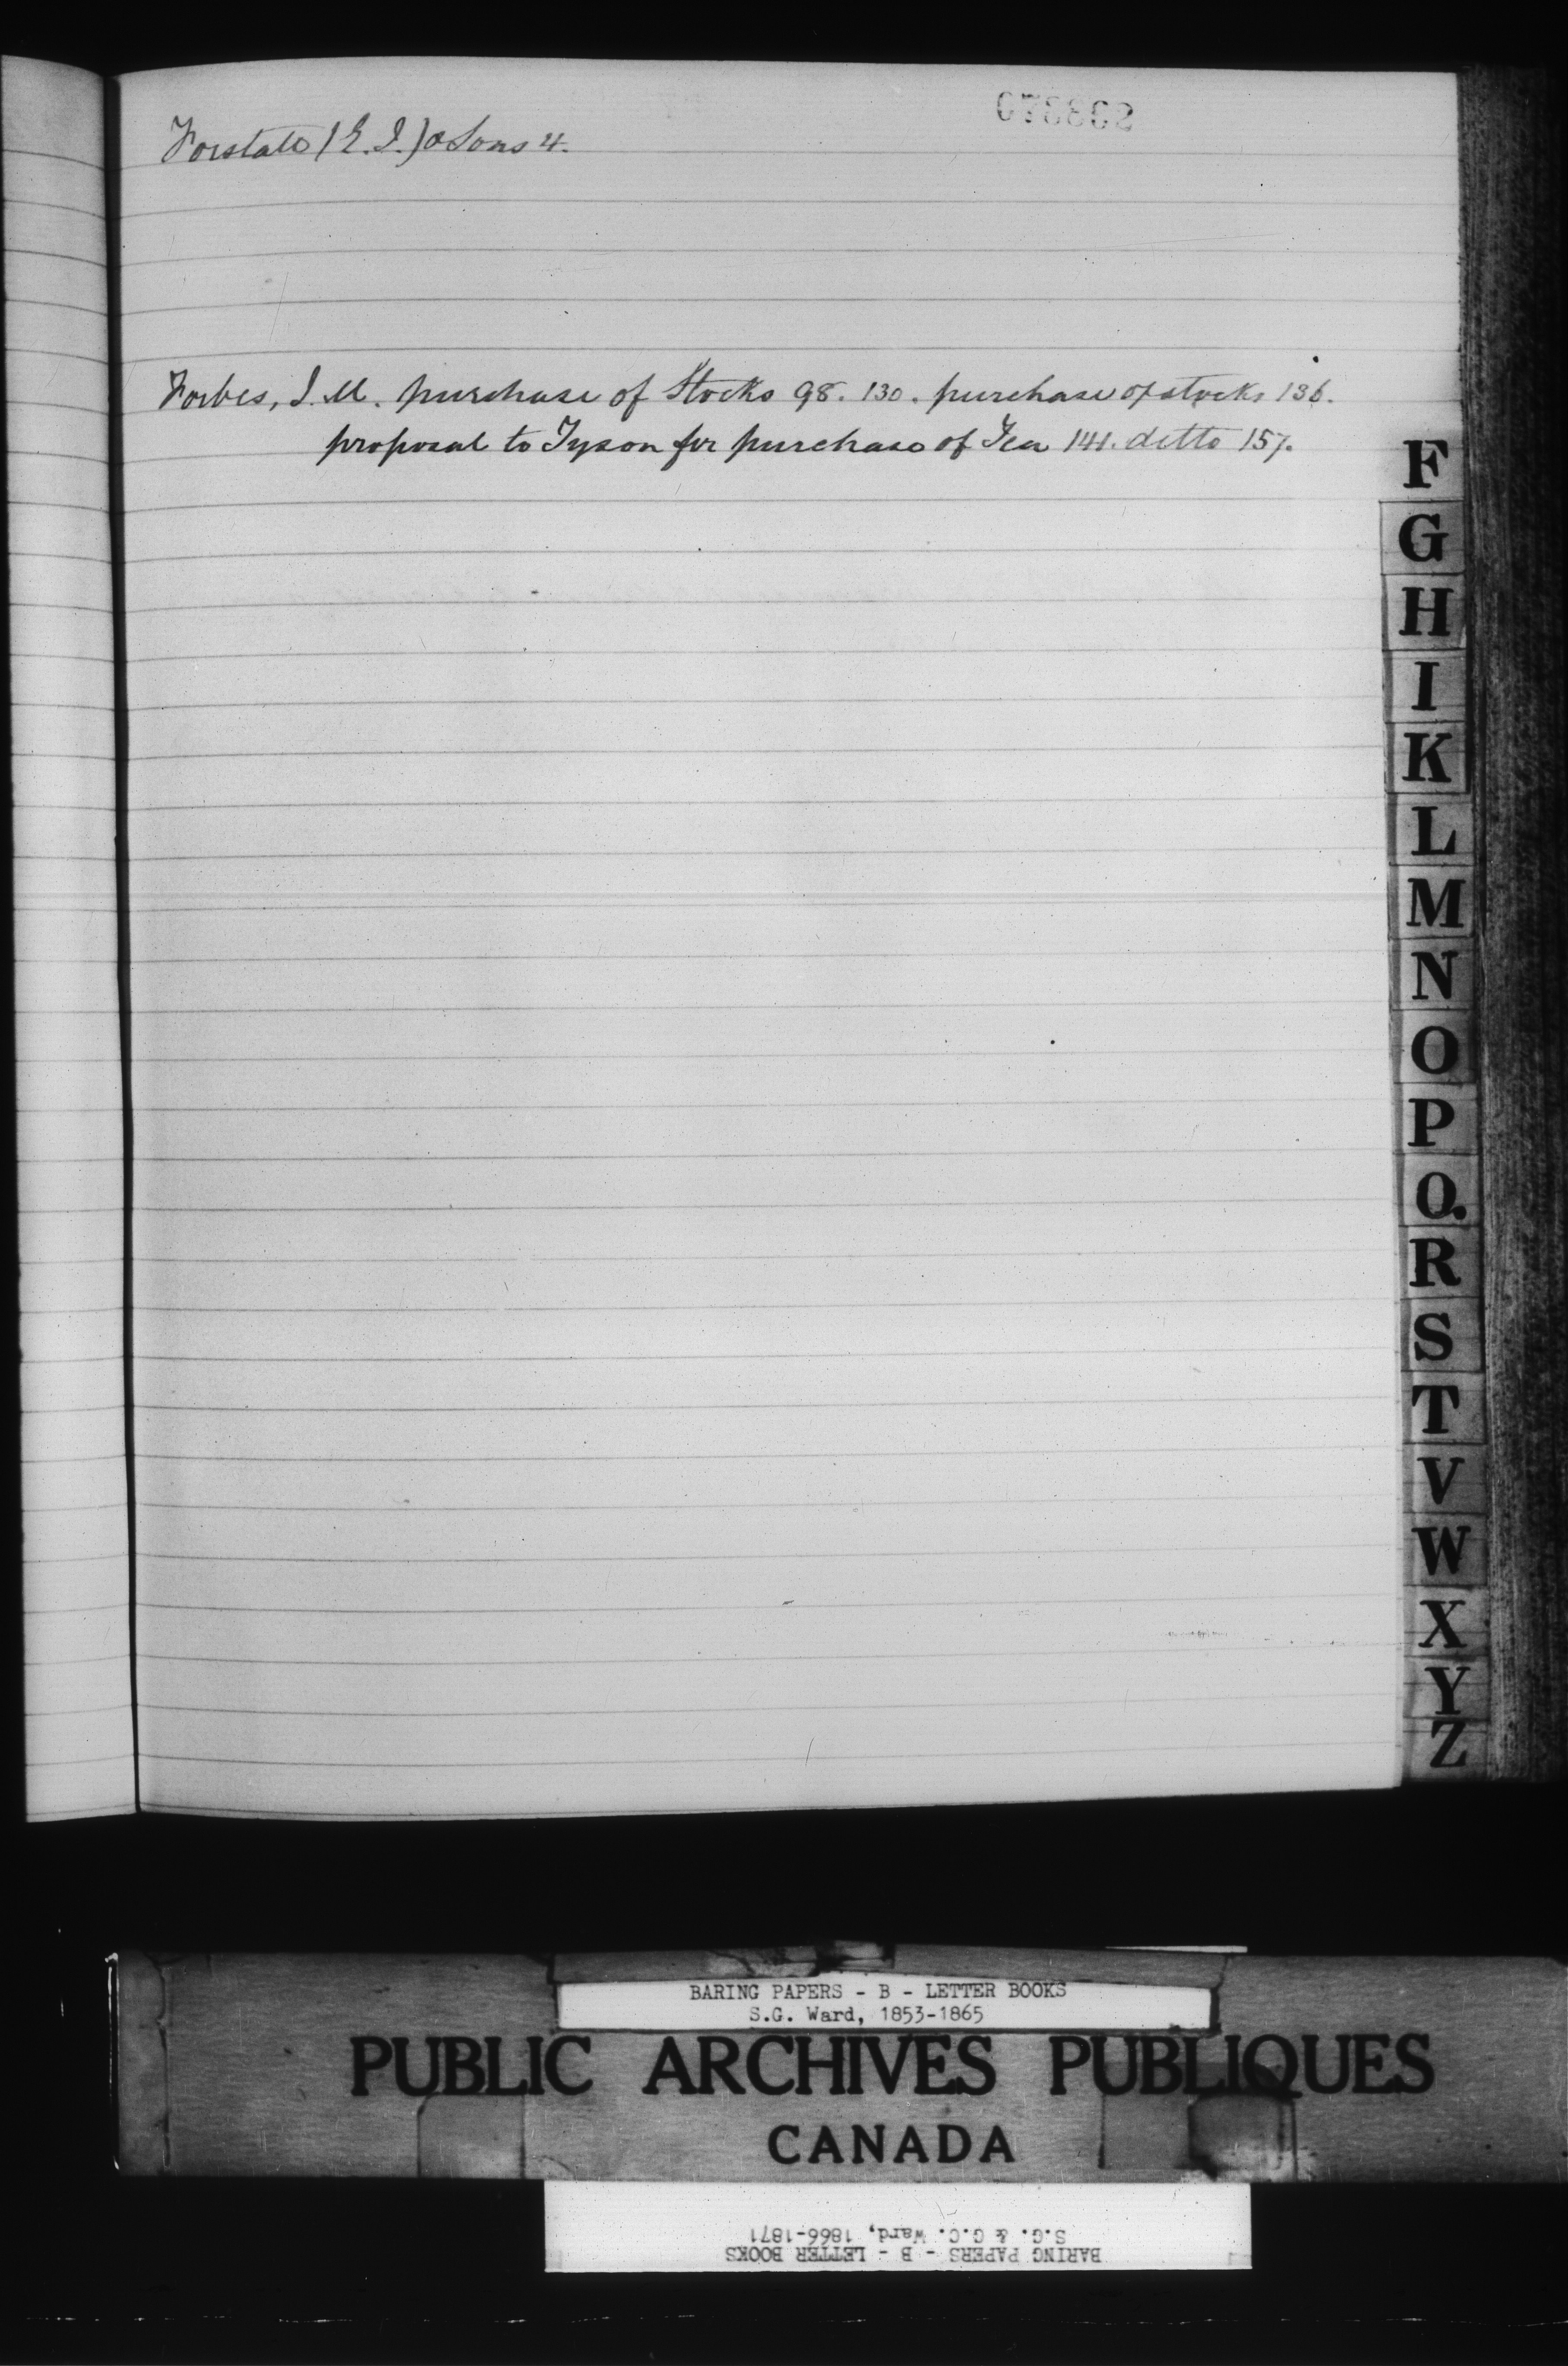 Forstall (E. J.) & Sons 4.
Forbes, J. M. purchase of Stocks 98. 130. purchase of stocks 136.
proposal to Tyson for purchase of Tea 141. ditto 157.
F
G
H
I
K
L
M
N
O
P
Q.
R
S
T
V
W
X
Y
Z
BARING PAPERS - B - LETTER BOOKS
S.G. Ward, 1853-1865
PUBLIC ARCHIVES PUBLIQUES
CANADA
BARING PAPERS - B - LETTER BOOKS
S.G. & G.C. Ward, 1866-1871